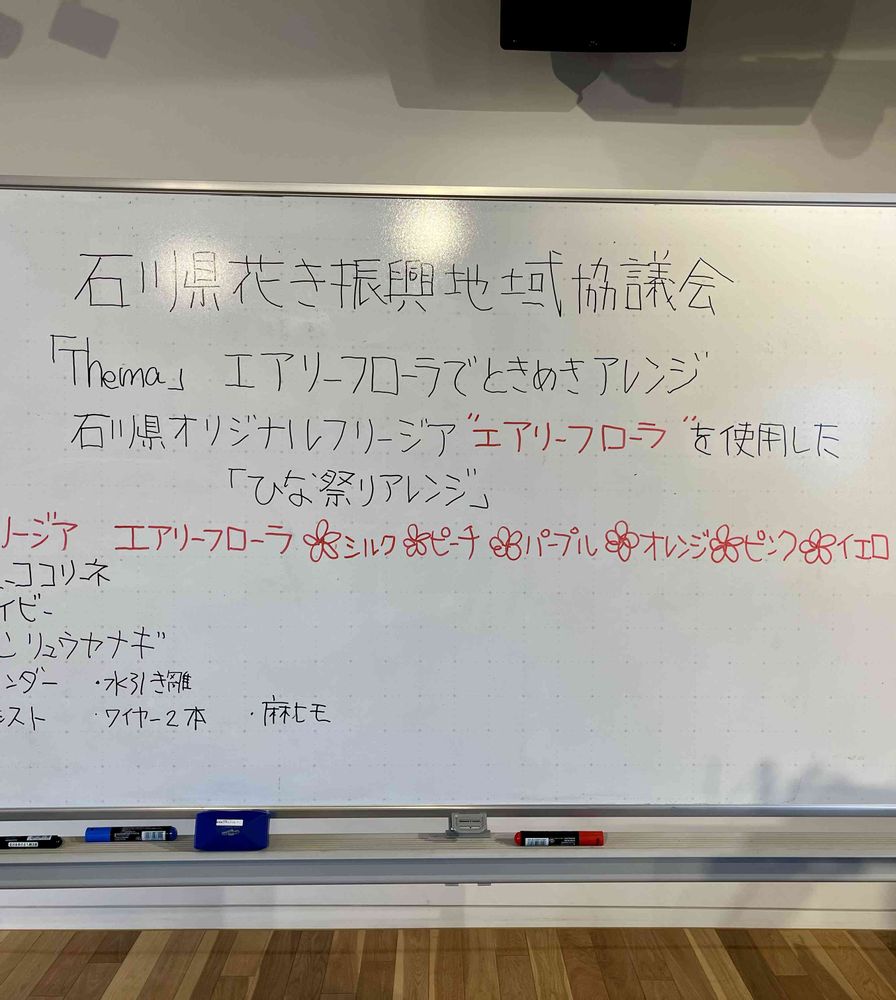 石川県花き振興地域協議会
「Thema」 エアリーフローラでときめきアレンジ
石川県オリジナルフリージア"エアリーフローラ"を使用した
「ひな祭りアレンジ」
リージア エアリーフローラ シルク ピーチ パープル オレンジ ピンク イエロ
ココリーネ
イビー
リュウヤナギ
ンダー ・水引き雛
スト ・ワイヤー2本 ・麻ヒモ